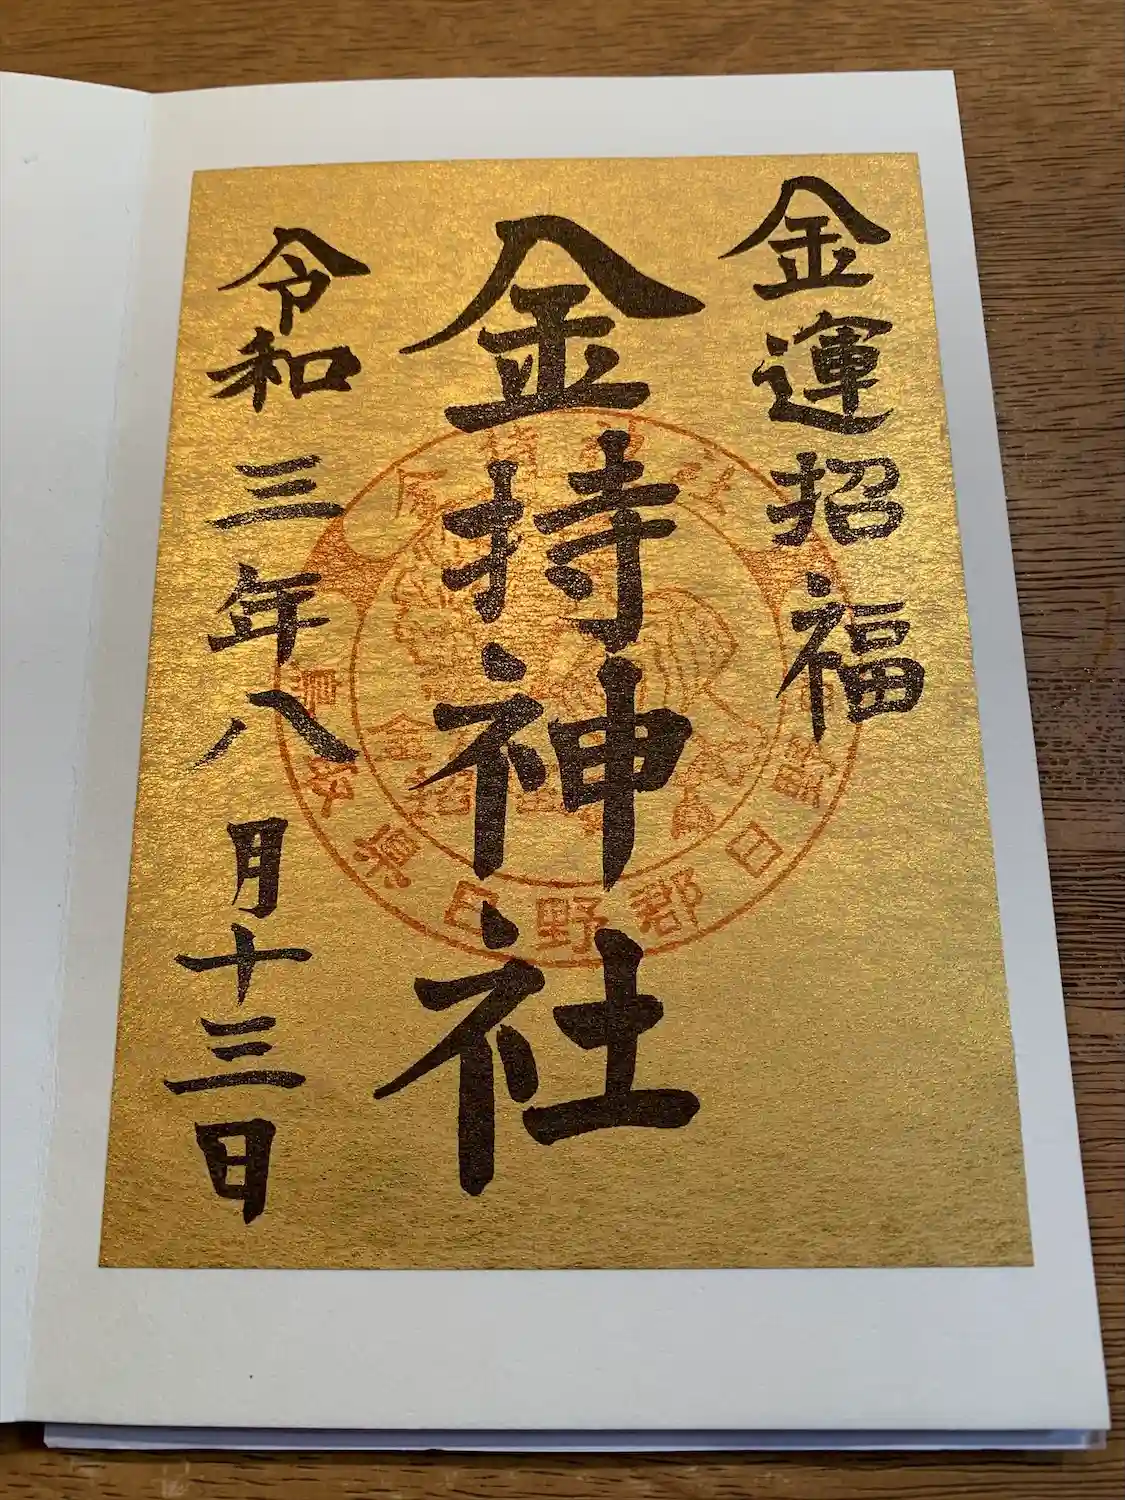 金運招福
金持神社
令和三年八月十三日
鳥取県日野郡日野